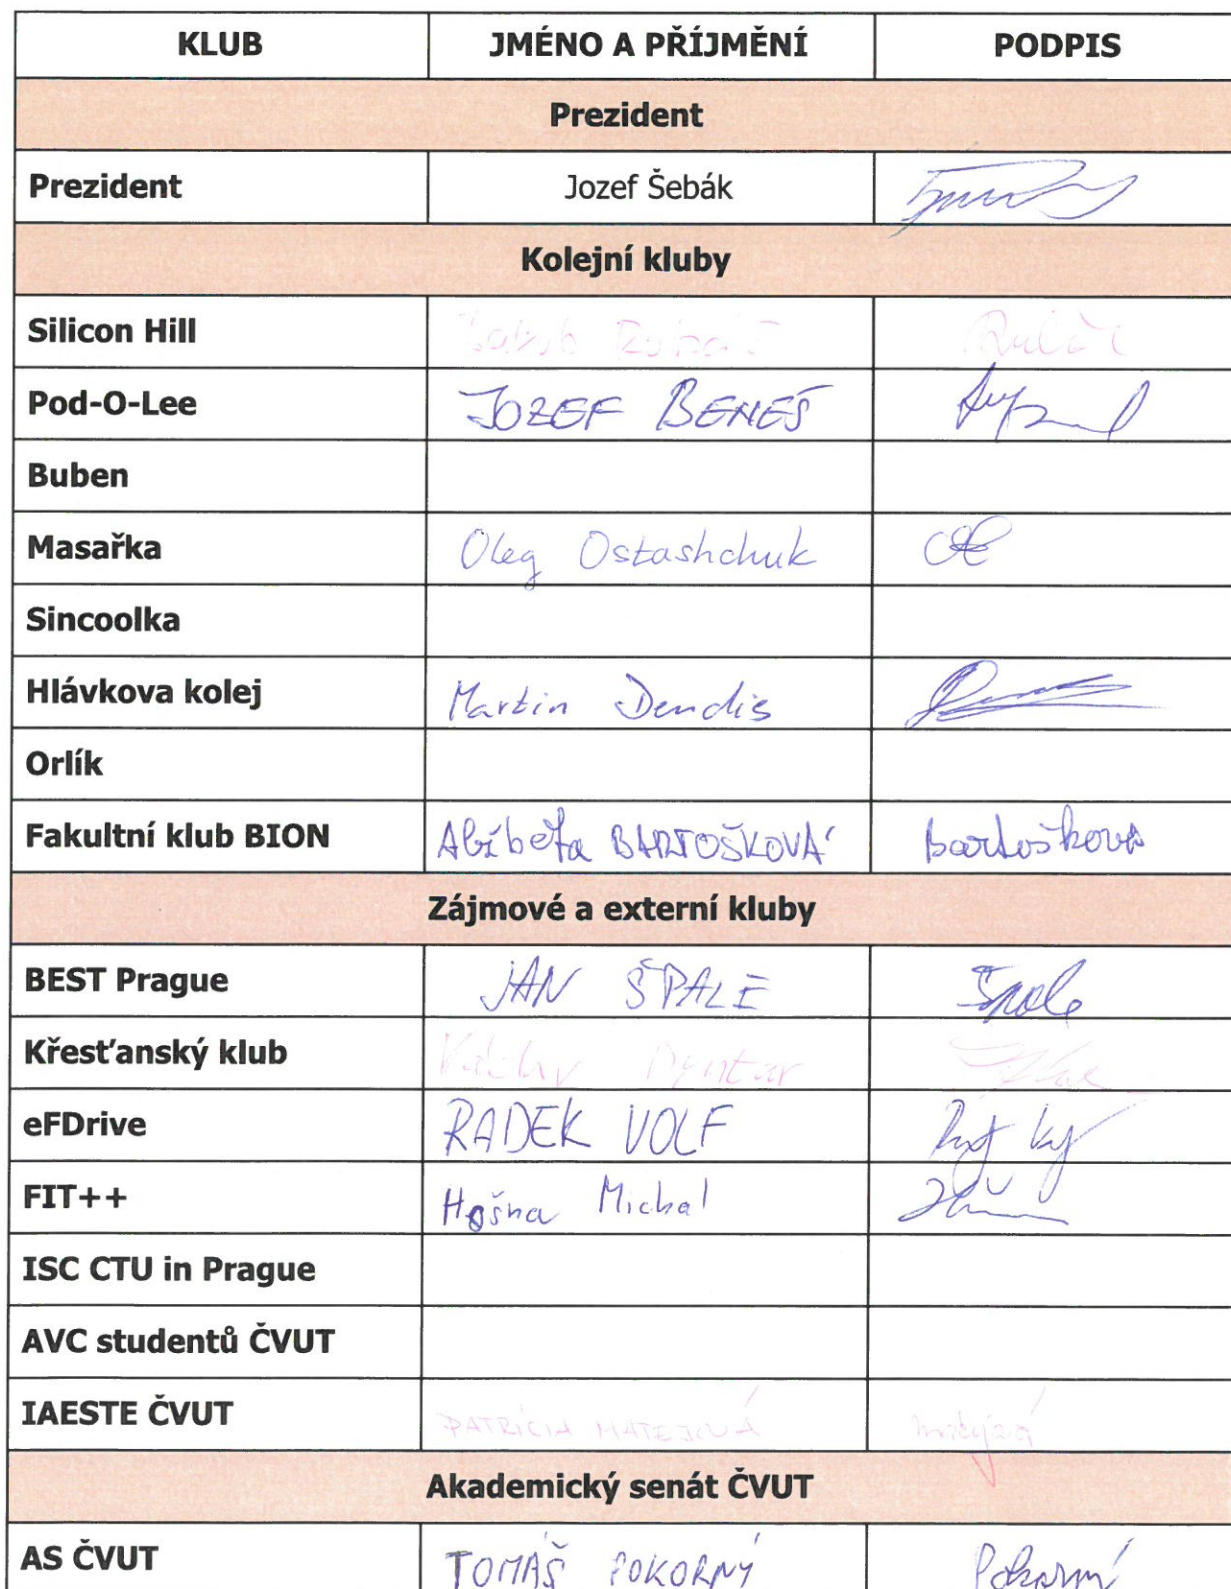 KLUB JMÉNO A PŘÍJMĚNÍ PODPIS
Prezident
Prezident Jozef Šebák
Kolejní kluby
Silicon Hill Jakub
Pod-O-Lee JOZEF BENEŠ
Buben
Masařka Oleg Ostashchuk
Sincoolka
Hlávkova kolej Martin Dendis
Orlík
Fakultní klub BION Alžběta BARTOŠKOVÁ Bartošková
Zájmové a externí kluby
BEST Prague JAN ŠPALE Špale
Křesťanský klub Václav Dyntar
eFDrive RADEK VOLF
FIT++ Hošna Michal
ISC CTU in Prague
AVC studentů ČVUT
IAESTE ČVUT PATRÍCIA MATEJOVÁ
Akademický senát ČVUT
AS ČVUT TOMÁŠ POKORNÝ Pokorný